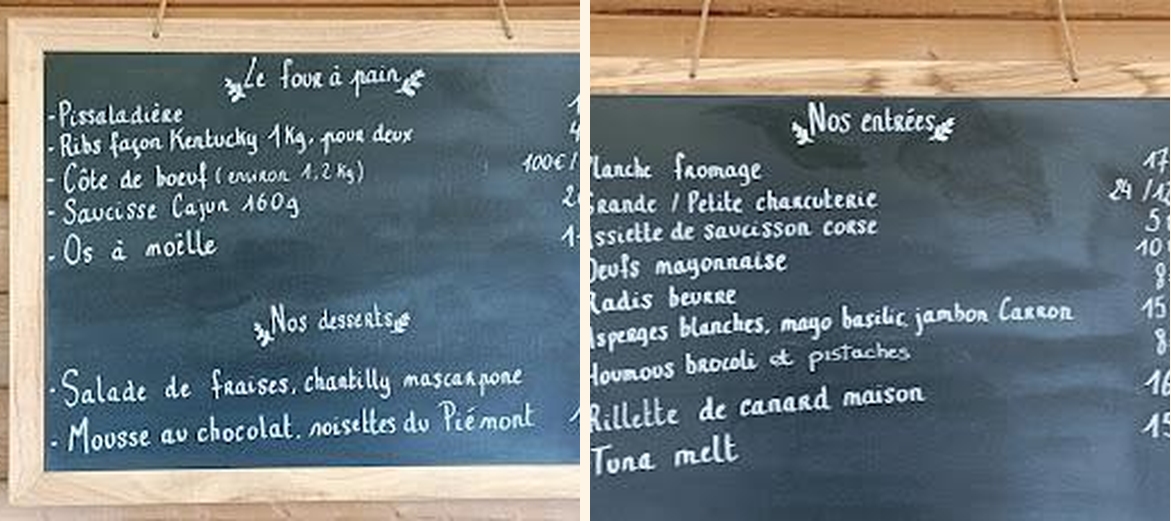 Le four à pain
- Pissaladière 1
- Ribs façon Kentucky 1Kg, pour deux 4
- Côte de boeuf (environ 1,2 Kg) 100€/
- Saucisse Cajun 160g 2
- Os à moëlle 1
Nos desserts
- Salade de fraises, chantilly mascarpone
- Mousse au chocolat, noisettes du Piémont 1
Nos entrées
lanche fromage 17
rande / Petite charcuterie 24 /1
ssiette de saucisson corse 5
Oeufs mayonnaise 10
Radis beurre 8
sperges blanches, mayo basilic, jambon Carron 15
Houmous brocoli et pistaches 8
Rillette de canard maison 16
Tuna melt 15